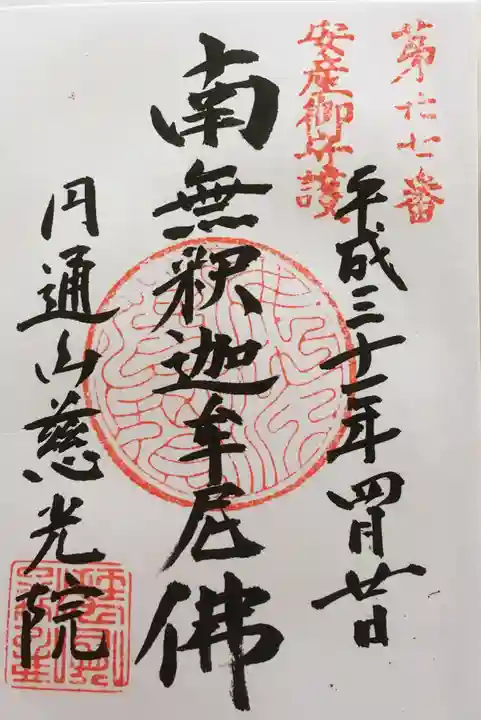 第六十七番
安産御守護
平成三十一年四月廿日
南無釈迦牟尼佛
円通山慈光院